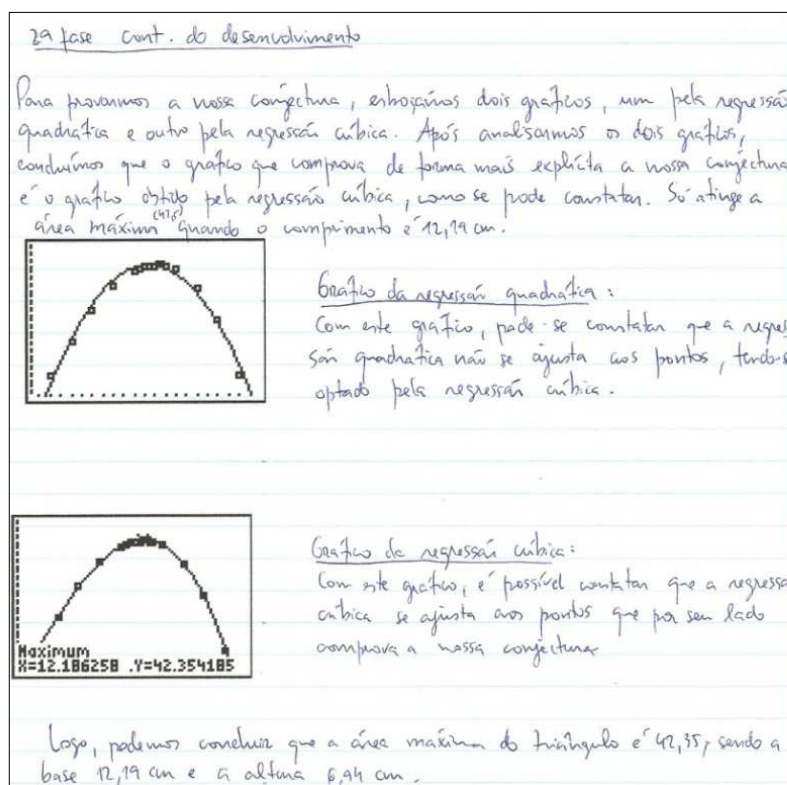 2ª fase cont. do desenvolvimento
Para provarmos a nossa conjectura, esboçámos dois gráficos, um pela regressão
quadrática e outro pela regressão cúbica. Após analisarmos os dois gráficos,
concluímos que o gráfico que comprova de forma mais explícita a nossa conjectura
é o gráfico obtido pela regressão cúbica, como se pode constatar. Só atinge a
área máxima quando o comprimento é 12,19 cm.
Gráfico da regressão quadrática:
Com este gráfico, pode-se constatar que a regres
são quadrática não se ajusta aos pontos, tendo-s
optado pela regressão cúbica.
Gráfico da regressão cúbica:
Com este gráfico, é possível constatar que a regressã
cúbica se ajusta aos pontos que por seu lado
comprova a nossa conjectura
Maximum
X=12.186258 .Y=42.354185
Logo, podemos concluir que a área máxima do triângulo é 42,35, sendo a
base 12,19 cm e a altura 6,94 cm.